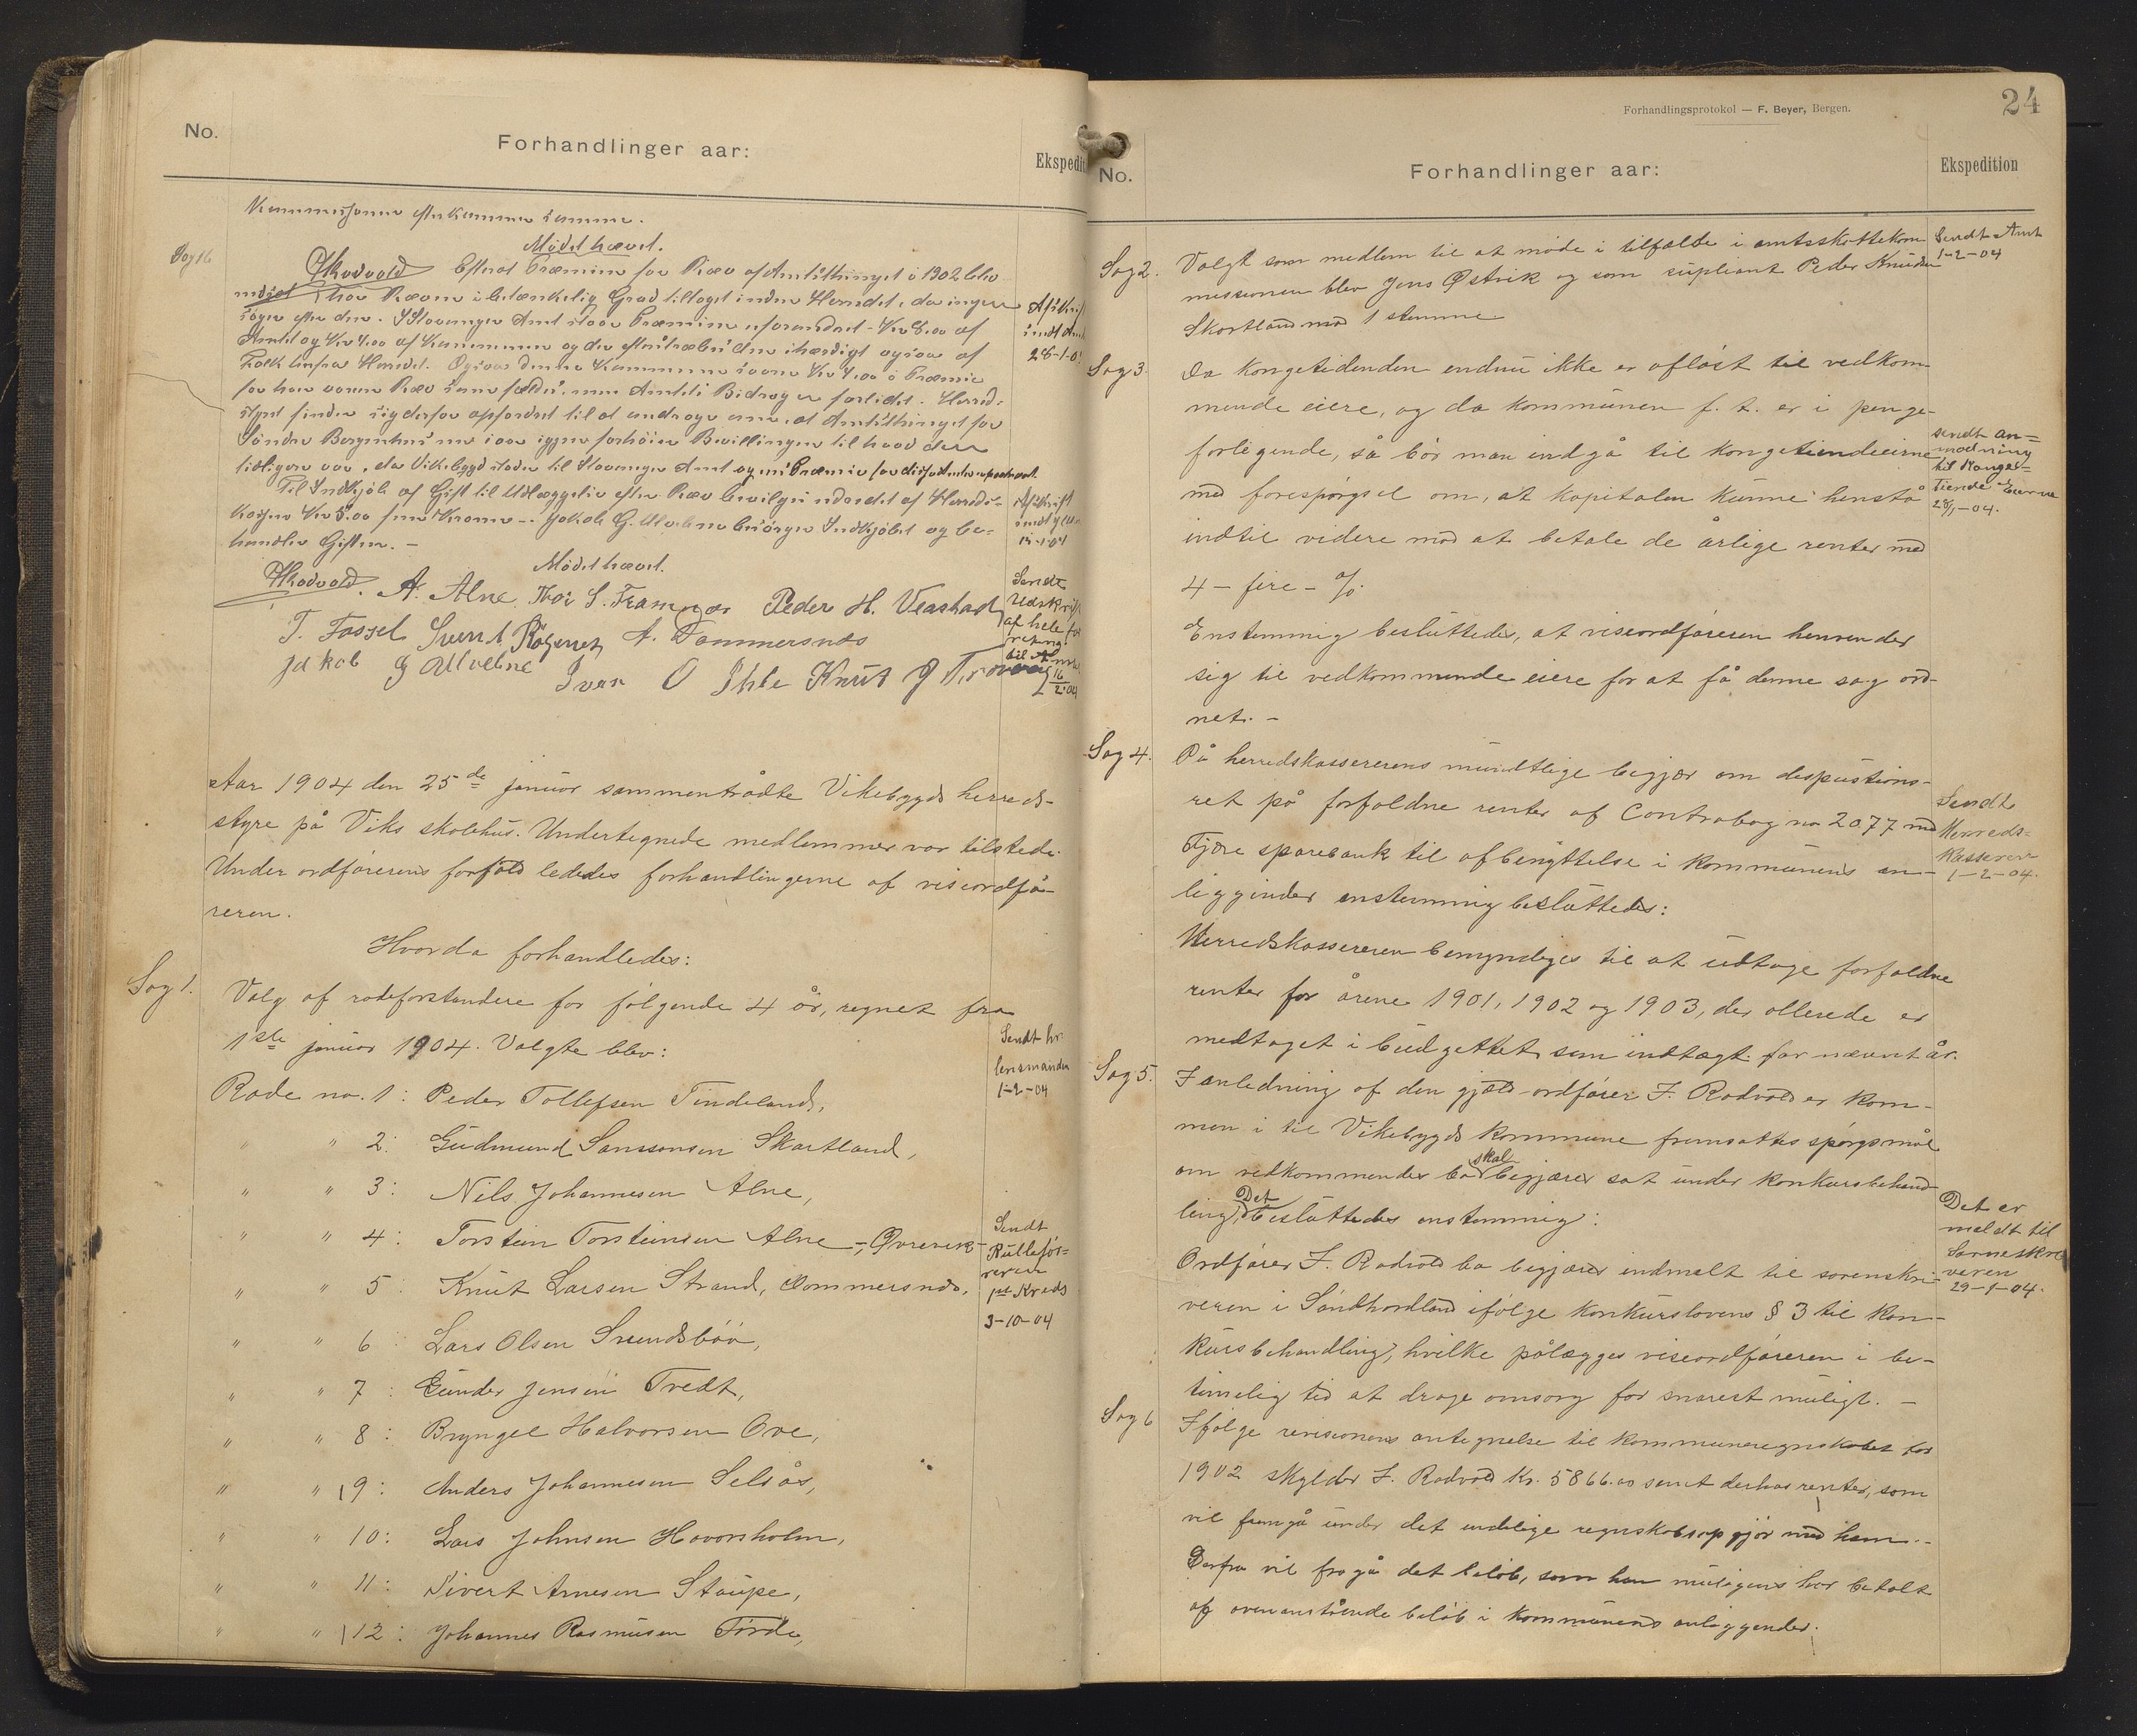 No.
Forhandlinger aar:
Ekspedit
Kommisjonen efterkommer samme.
Mødet hævet.
Sag 16
JRodvold Efterat Præmien for Ræv af Amtsthinget i 1902 blev
indstil, har Rævene i betænkelig Grad tiltaget inden Herredet, da ingen
søger efter den. I Stavanger Amt staar Præmien uforandret - Kr 8.00 af
Amtet og Kr 4.00 af Kommunen og den efterstræbes der ihærdigt ogsaa af
Folk herfra Herredet. Ogsaa denne Kommune svarer Kr 4.00 i Præmie
for hver voxen Ræv som fældes, men Amtets Bidrag er for lidet. Herred-
styret finder sig derfor opfordret til at andrage om, at Amtsthinget for
Søndre Bergenhus nu iaar igjen forhøier Bevillingen til hvad den
tidligere var, da Vikebygd støder til Stavanger Amt
Til Indkjøb af Gift til Udlæggelse efter Ræv bevilges udredet af Herreds-
kassen Kr 5.00 fem Kroner -. Jakob G. Ulvebne besørger Indkjøbet og be-
handler Giften. -
Mødet hævet.
Afskrift
sendt Amt
28-1-0
Afskrift
sendt
JRodvold. A. Alne. Thor S. Framnes Peder H. Veastad
T. Fossel Sverd A. Dommersnes
Jakob G Ulvebne Ivar O Ihle Knut J
Sendt
Udskrift
af hele for
retning
til Amt
16
2-04
Aar 1904 den 25de januar sammentrådte Vikebygds herreds-
styre på Viks skolehus. Undertegnede medlemmer var tilstede.
Under ordførerens forfald lededes forhandlingerne af viseordfø-
reren.
Hvorda forhandledes:
Sag 1.
Valg af rodeforstandere for følgende 4 år, regnet fra
1ste januar 1904. Valgte blev:
Sendt hr.
lensmanden
1-2-04
Rode no. 1: Peder Tollefsen Tindeland,
" " 2: Gudmund Samsonsen Skartland,
" " 3: Nils Johannesen Alne,
" " 4: Torstein Torsteinsen Alne -, Øvrevik -
" " 5: Knut Larsen Strand, Dommersnes,
" " 6: Lars Olsen Svendsbøv,
" " 7: Gunder Jensen Tvedt,
" " 8: Bryngel Halvorsen Ove,
" " 9: Anders Johannesen Selsås,
" " 10: Lars Johnsen Hovorsholm,
" " 11: Sivert Arnesen Staupe,
" " 12: Johannes Rasmusen Førde,
Sendt
Rulleför=
reren
1ste Kreds
3-10-04
Forhandlingsprotokol — F. Beyer, Bergen.
24
No.
Forhandlinger aar:
Ekspedition
Sag 2.
Valgt som medlem til at møde i tilfælde i amtsskattekom-
missionen blev Jens Østvik og som supliant Peder Knudsen
Skartland med 1 stemme
Sendt Amt
1-2-04
Sag 3.
Da kongetidenden endnu ikke er afløst til vedkom-
mende eiere, og da kommunen f. t. er i penge-
forlegende, så bør man indgå til kongetiendeeierne
med forespørgsel om, at kapitalen kunne henstå
indtil videre mod at betale de årlige renter med
4 - fire - %.
Enstemmig besluttedes, at viseordføreren henvender
sig til vedkommende eiere for at få denne sag ord-
net. -
sendt an=
modning
til Konge=
Tiende-Eierne
28/1-04.
Sag 4.
På herredskassererens mundtlige begjær om dispustions-
ret på forfaldne renter af Contrabog no 2077 med
Fjære sparebank til afbenyttelse i kommunens an-
liggender enstemmig besluttedes:
Herredskassereren bemyndiges til at udtage forfaldne
renter for årene 1901, 1902 og 1903, der allerede er
medtaget i budgettet som indtægt for nævnt år.
Sendt
Herreds=
kasserer
1-2-04.
Sag 5.
I anledning af den gjæld ordfører J. Rodvold er kom-
men i til Vikebygds kommune fremsattes spørgsmål
om vedkommendes bo skal begjæres sat under konkursbehand-
ling. Det besluttedes enstemmig:
Ordfører J. Rodvold bo begjæres indmelt til sorenskri-
veren i Søndhordland ifølge konkurslovens § 3 til kon-
kursbehandling, hvilke pålægges viseordføreren i be-
timelig tid at drage omsorg for snarest muligt. -
Det er
meldt til
Sorenskri
veren
29-1-04.
Sag 6
Ifølge revisionens antegnelse til kommuneregnskabet for
1902 skylder J. Rodvold Kr. 5866.00 samt derhos renter, som
vil fremgå under det endelige regnskabsopgjør med ham. -
Derfra vil fragå det beløb, som han muligens har betalt
af ovenanstående beløb i kommunens anliggender.